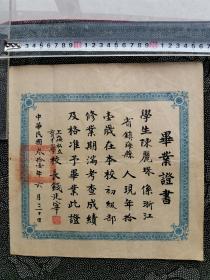 畢業證書
學生陳麗珠係浙江
省鎮海縣人現年拾
壹歲在本校初級部
修業期滿考查成績
及格准予畢業此證
上海私立
校長錢
中華民國叁拾年六月三十日